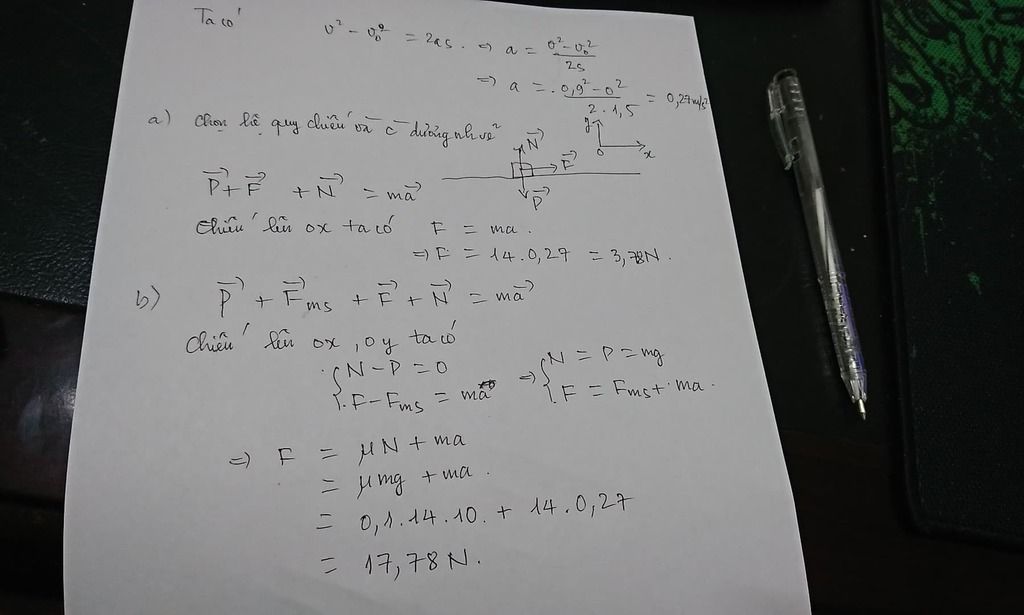 Ta có
v² - v₀² = 2as. ⇒ a = (v² - v₀²)/2s
⇒ a = (0,9² - 0²)/(2.1,5) = 0,27 m/s²
a) Chọn hệ quy chiếu và c dương như vẽ
N⃗ F⃗ P⃗ y O x
P⃗ + F⃗ + N⃗ = ma⃗
Chiếu lên ox ta có F = ma.
⇒ F = 14.0,27 = 3,78N.
b) P⃗ + F⃗ms + F⃗ + N⃗ = ma⃗
Chiếu lên ox, oy ta có
{ N - P = 0 ⇒ { N = P = mg
{ F - Fms = ma { F = Fms + ma.
⇒ F = μN + ma
= μmg + ma.
= 0,1.14.10. + 14.0,27
= 17,78 N.